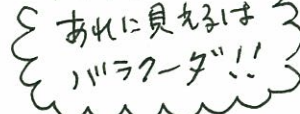 あれに見えるは
バラクーダ!!